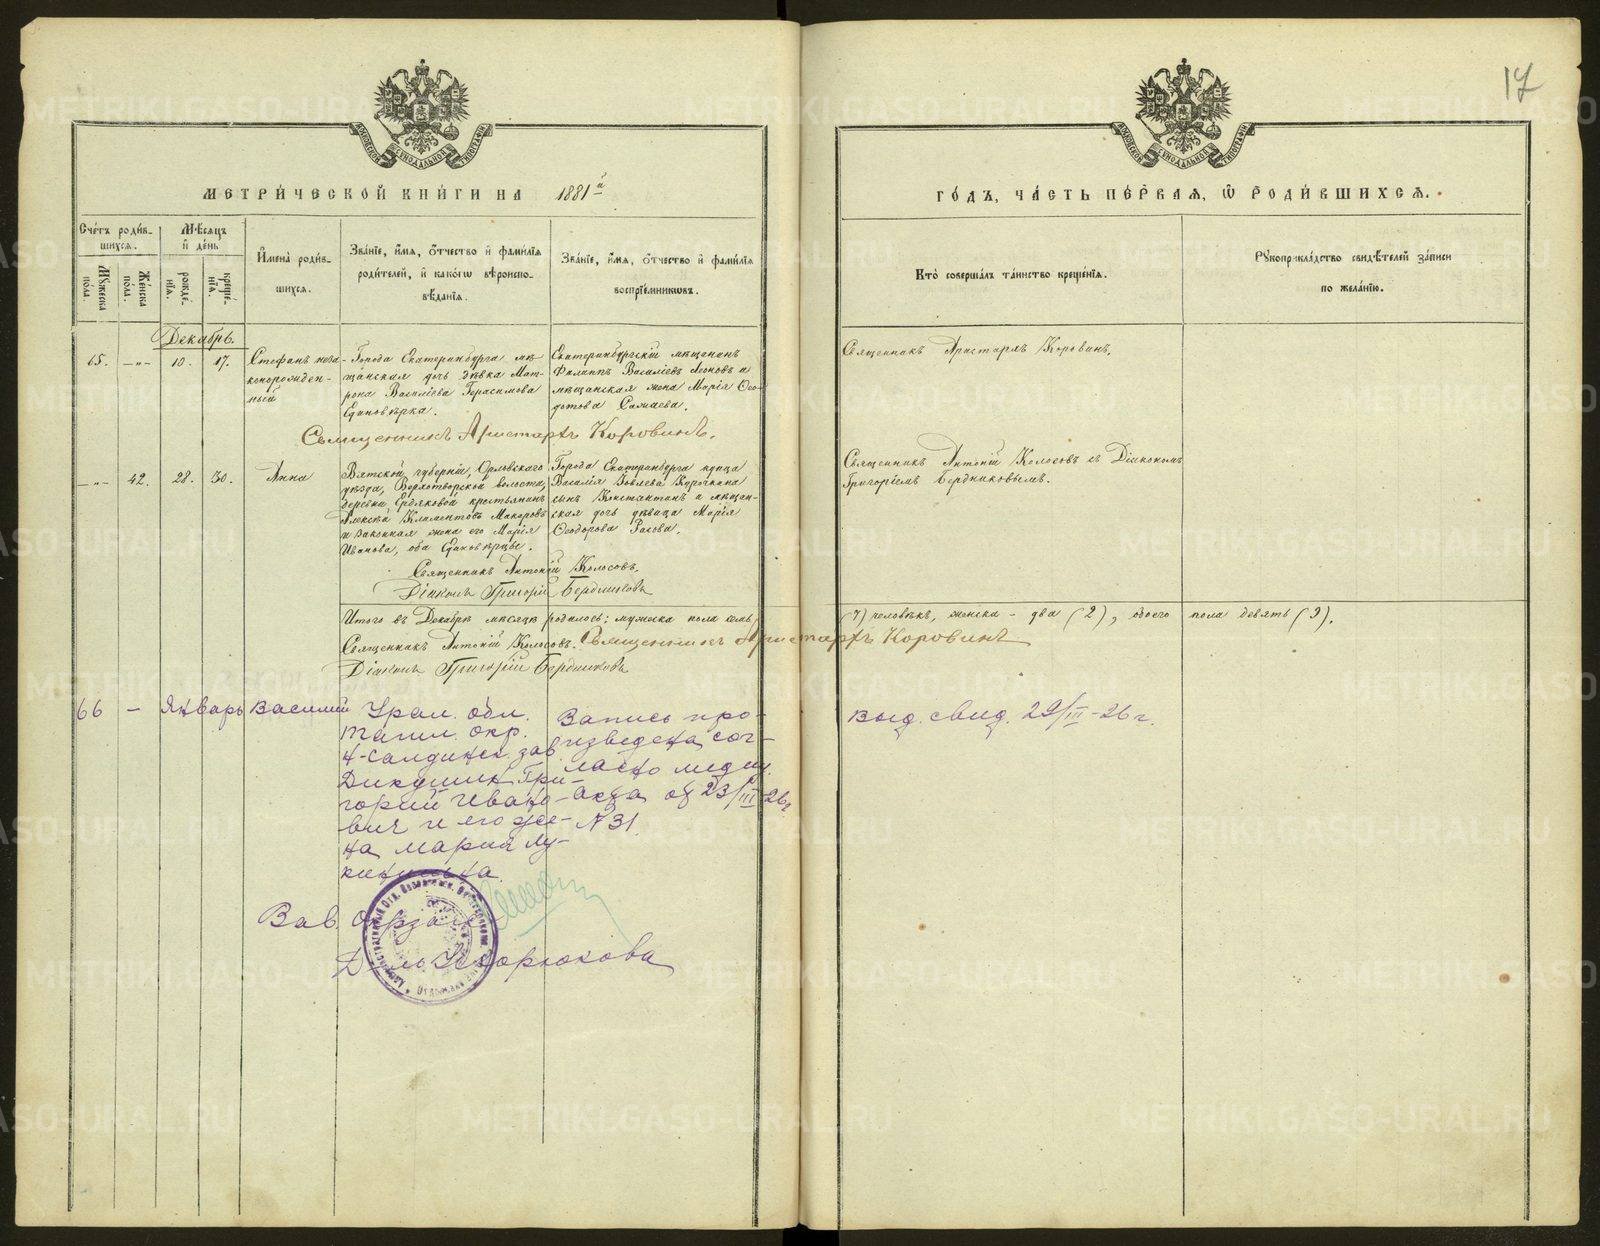 17
МОСКОВСКОЙ СѴНОДАЛЬНОЙ ТИПОГРАФІИ
МОСКОВСКОЙ СѴНОДАЛЬНОЙ ТИПОГРАФІИ
МЕТРИ́ЧЕСКОЙ КНИ́ГИ НА 1881й
ГО́ДЪ, ЧА́СТЬ ПЕ́РВАЯ, Ѡ РОДИ́ВШИХСЯ.
Сче́тъ роди́в-
шихся.
Му́жеска по́ла.
Же́нска по́ла.
Мѣ́сяцъ
и де́нь
рожде́-
нія.
креще́-
нія.
Имена̀ роди́в-
шихся.
Зва́ніе, и́мя, о́тчество и фами́лія
роди́телей, и како́гѡ вѣроиспо-
вѣ́данія.
Зва́ніе, и́мя, о́тчество и фами́лія
воспріе́мниковъ.
Кто̀ соверша́лъ та́инство креще́нія.
Рукоприкла́дство свидѣ́телей за́писи
по жела́нію.
Декабрь.
65. —„— 10. 17.
Стефанъ неза-
конорожден-
ный
Города Екатеринбурга мѣ-
щанская дочь дѣвка Мат-
рона Василіева Герасимова
Единовѣрка.
Екатеринбургскій мѣщанинъ
Филиппъ Василіевъ Леоновъ и
мѣщанская жена Марія Ѳео-
дотова
Священникъ Аристархъ Коровинъ.
Священникъ Аристархъ Коровинъ.
—„— 42. 28. 30.
Анна
Вятской губерніи, Орловскаго
уѣзда, Верхотворской волости,
деревни крестьянинъ
Алексѣй Климентовъ Макаровъ
и законная жена его Марія
Иванова, оба Единовѣрцы.
Города Екатеринбурга купца
Василія Яковлева
сынъ Константинъ и мѣщан-
ская дочь дѣвица Марія
Ѳеодорова
Священникъ Антоній Колосовъ съ Діакономъ
Григоріемъ Бердниковымъ.
Священникъ Антоній Колосовъ.
Діаконъ Григорій Бердниковъ
Итого въ Декабрѣ мѣсяцѣ родилось: мужеска пола семь (7) человѣкъ, женска – два (2), обоего пола девять (9).
Священникъ Антоній Колосовъ. Священникъ Аристархъ Коровинъ
Діаконъ Григорій Бердниковъ
66 – Январь Василий
Урал. обл.
тагил. окр.
Н-Салдинск. зав
Дикушин Гри-
горий Ивано-
вич и его же-
на Мария Лу-
кинишна.
Запись про-
изведена сог-
ласно медиц.
акта от 23/III-26г
N 31.
Выд. свид. 29/III-26 г.
Зав. Окрзаг
Д-ль
METRIKI.GASO-URAL.RU